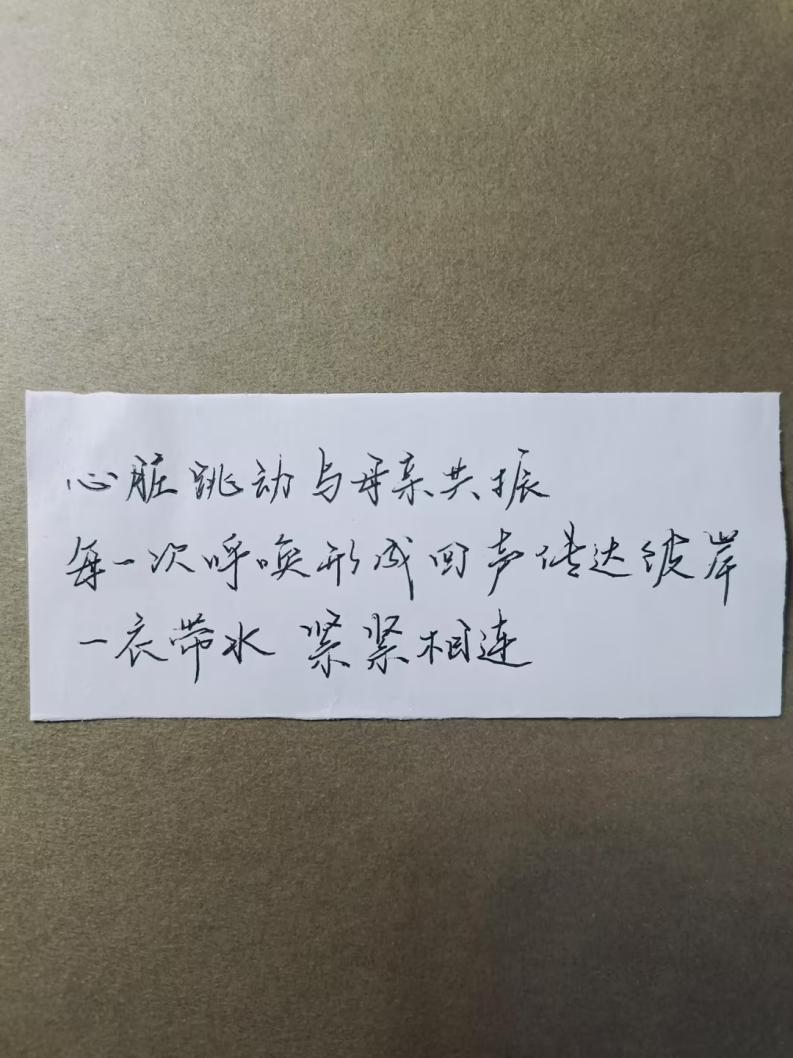 心脏跳动与母亲共振
每一次呼唤形成回声传达彼岸
一衣带水 紧紧相连